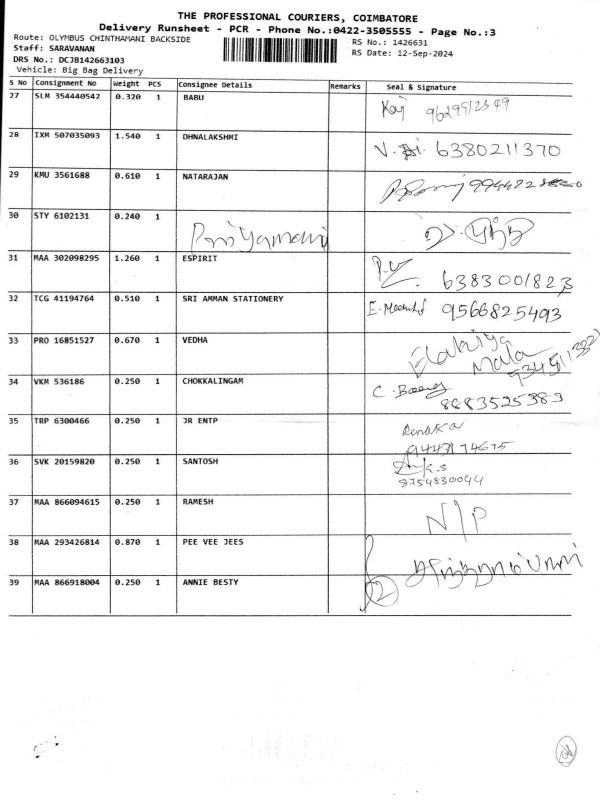 THE PROFESSIONAL COURIERS, COIMBATORE
Delivery Runsheet - PCR - Phone No.:0422-3505555 - Page No.:3
Route: OLYMBUS CHINTHAMANI BACKSIDE
RS No.: 1426631
Staff: SARAVANAN
RS Date: 12-Sep-2024
DRS No.: DCJB142663103
Vehicle: Big Bag Delivery
S No Consignment No Weight PCS Consignee Details Remarks Seal & Signature
27 SLM 354440542 0.320 1 BABU
28 IXM 507035093 1.540 1 DHNALAKSHMI V. 6380211370
29 KMU 3561688 0.610 1 NATARAJAN
30 STY 6102131 0.240 1 Priyamani
31 MAA 302098295 1.260 1 ESPIRIT 6383001823
32 TCG 41194764 0.510 1 SRI AMMAN STATIONERY 9566825493
33 PRO 16851527 0.670 1 VEDHA Elakiya Mala
34 VKM 536186 0.250 1 CHOKKALINGAM C. 8883525389
35 TRP 6300466 0.250 1 JR ENTP Renuka
36 SVK 20159820 0.250 1 SANTOSH K.S 8754830044
37 MAA 866094615 0.250 1 RAMESH N/P
38 MAA 293426814 0.870 1 PEE VEE JEES
39 MAA 866918004 0.250 1 ANNIE BESTY 2